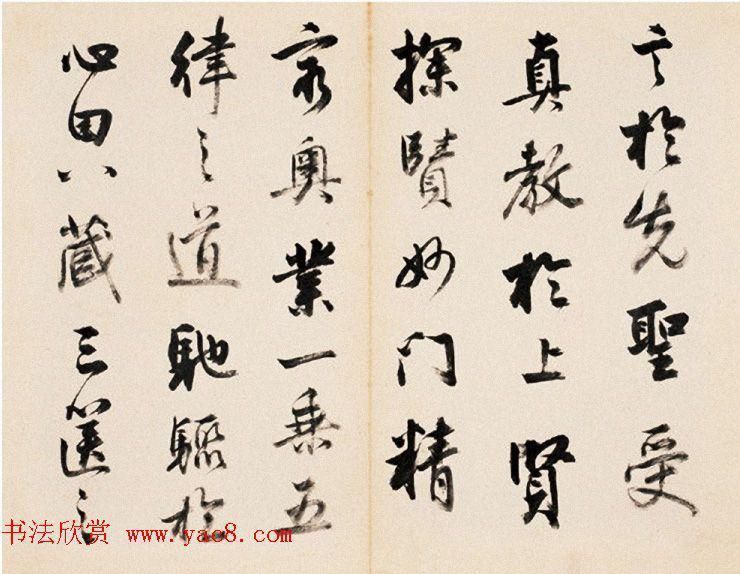 言於先聖受
真教於上賢
探賾妙門精
窮奧業一乘五
律之道馳驟於
心田八藏三篋之
书法欣赏 www.yac8.com